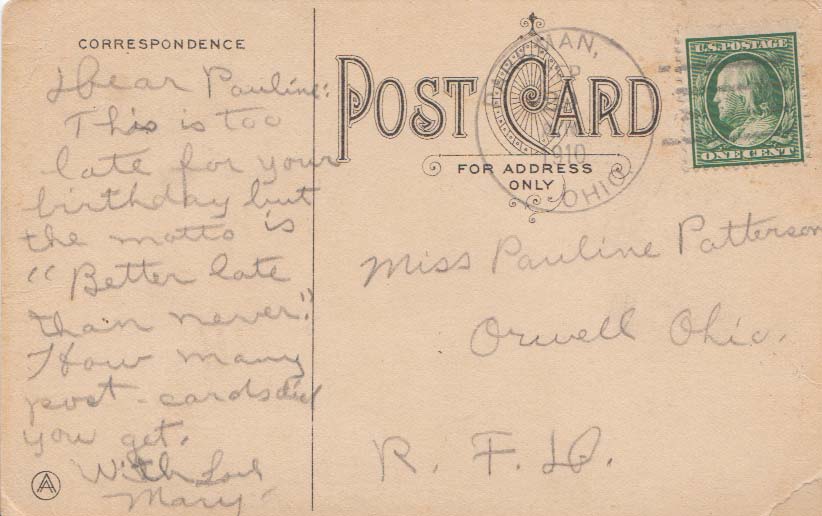 CORRESPONDENCE
POST CARD
FOR ADDRESS
ONLY
MAN,
1910
OHIO
U.S. POSTAGE
ONE CENT
Dear Pauline:
This is too
late for your
birthday but
the motto is
"Better late
than never."
How many
post-cards did
you get.
With Love
Mary-
Miss Pauline Patterson
Orwell Ohio.
R. F. D.
A